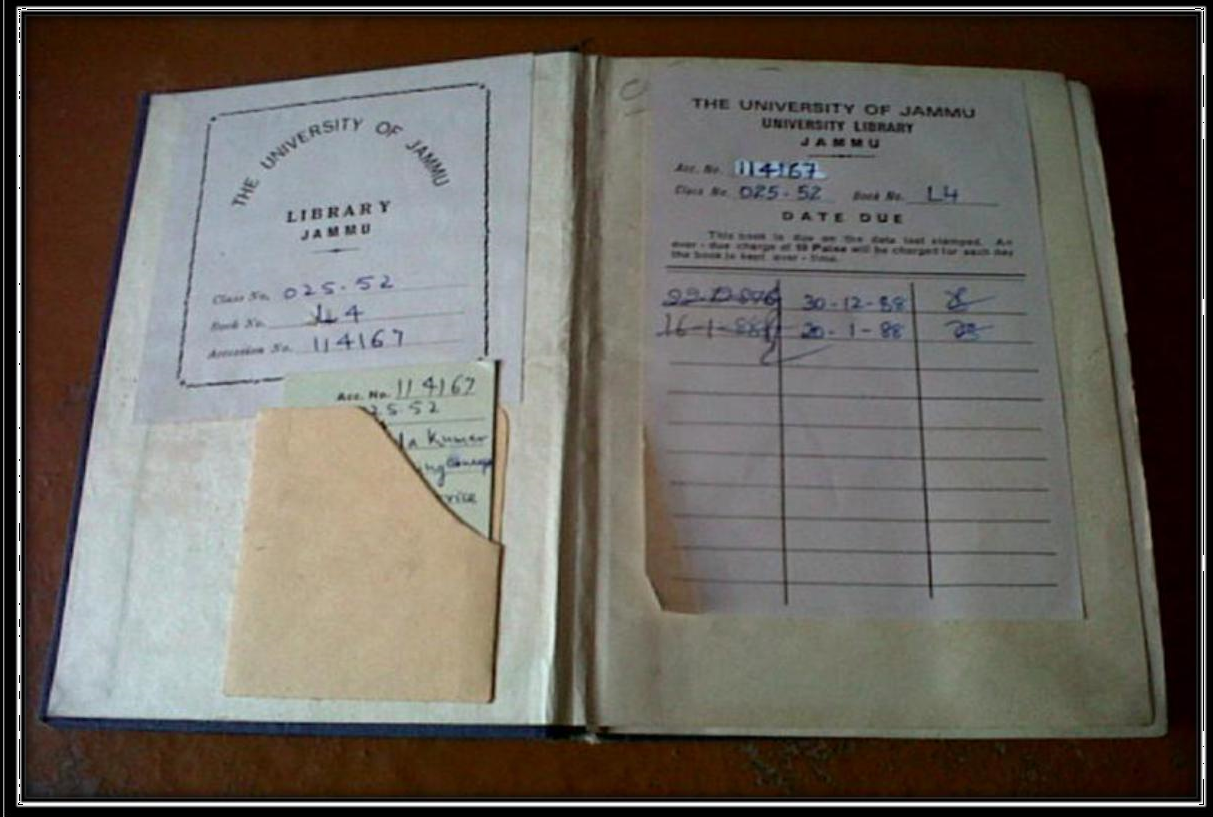 THE UNIVERSITY OF JAMMU
LIBRARY
JAMMU
Class No. 025.52
Book No. L4
Accession No. 114167
Acc. No. 114167
25.52
la Kumar
vice
THE UNIVERSITY OF JAMMU
UNIVERSITY LIBRARY
JAMMU
Acc. No. 114167
Class No. 025.52 Book No. L4
DATE DUE
This book is due on the date last stamped. An
over-due charge of 10 Paise will be charged for each day
the book is kept over-time.
30-12-88
16-1-88 20-1-88